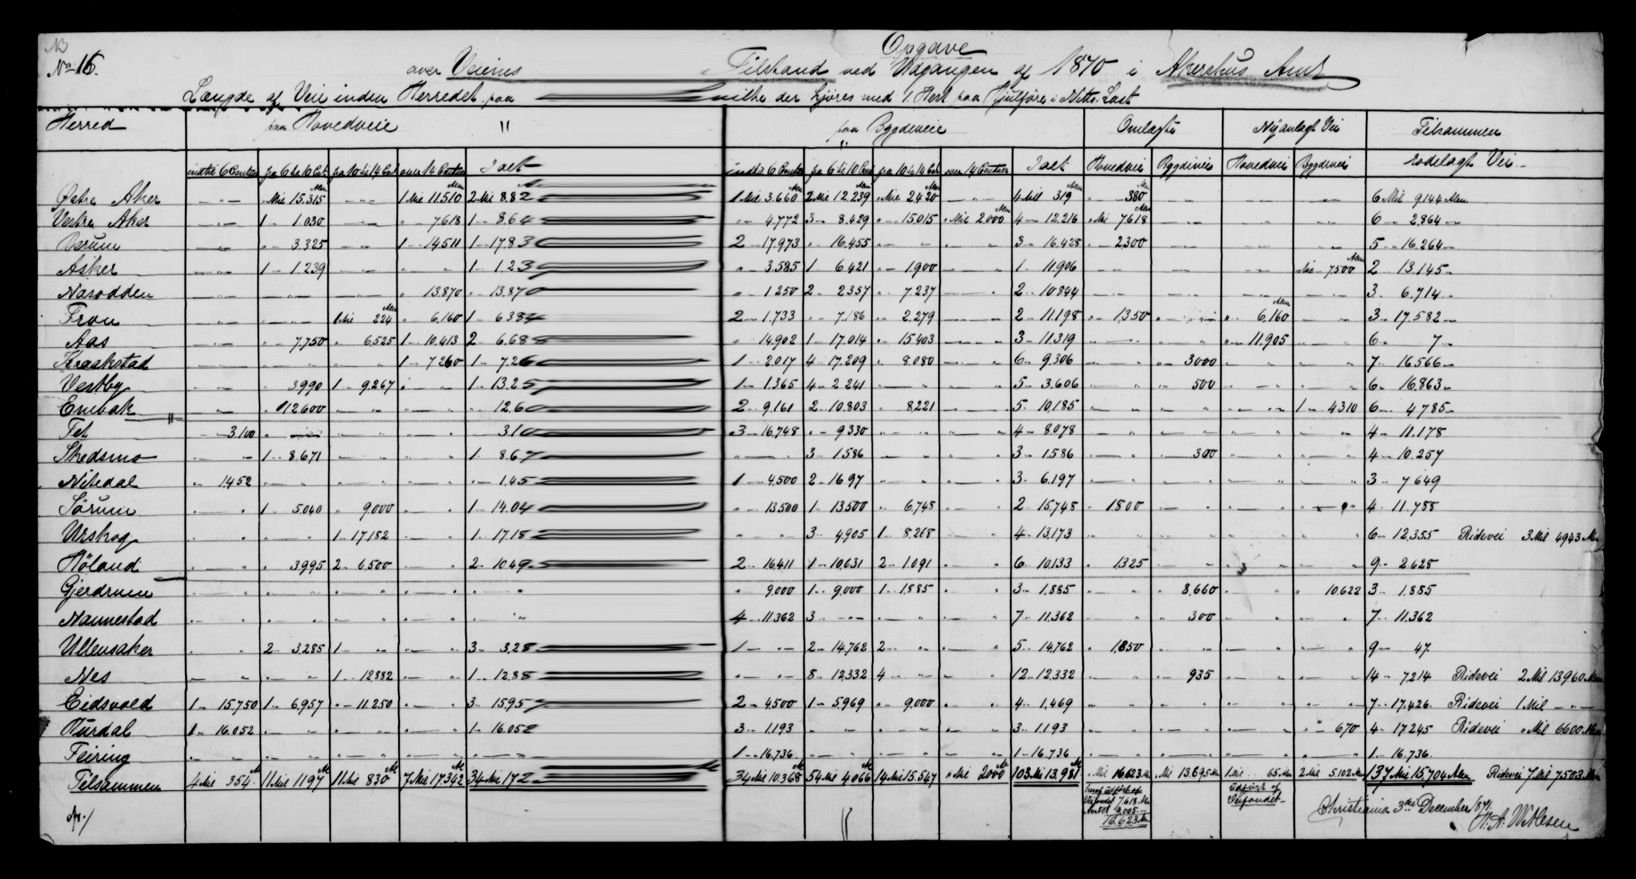 No 15.
Opgave
over Veienes Tilstand ved Udgangen af 1870 i Akershus Amt
Længde af Veie inden Herredet paa hvilke der kjöres med 1 Hest paa Hjulföre i Netto Last
Herred paa Hovedveie " paa Bygdeveie Omlagte Nyanlagt Vei Tilsammen
indtil 6 Centner paa 6 til 10 Cnt. paa 10 til 14 Cnt. over 14 Centner Ialt indtil 6 Centner paa 6 til 10 Cent paa 10 til 14 Cnt. over 14 Centner Ialt Hovedvei Bygdevei Hovedvei Bygdevei rodelagt Vei
Östre Aker " Mil 15.315 " 1 Mil 11.510 2 Mil 8.82 1 Mil 3.660 2 Mil 12.239 " Mil 2420 " 4 Mil 319 " 380 6 Mil 9144 Alen
Vestre Aker " 1 " 1.030 " " 7.618 1 " 8.64 " 4.772 3 " 8.429 " 15.015 " Mil 2.000 4 " 12.216 " Mil 7618 6 " 2.864
Bærum " " 3.325 " 1 " 14.511 1 " 17.83 2 " 17.973 " 16.455 " " 3 " 16.428 " 2.300 5 " 16.264
Asker " 1 " 1.239 " " 1 " 1.23 " 3.585 1 " 6.421 " 1.900 " 1 " 11.906 " Mil 7500 2 " 13.145
Næsodden " " " " 13.870 " 13.870 " 1250 2 " 2357 " 7.237 " 2 " 10.844 3 " 6.714
Fron " " 1 Mil 224 " 6.160 1 " 6.384 2 " 1.733 " 7.186 " 2.279 " 2 " 11.198 " 1350 " " 6.160 3 " 17.582
Aas " " 7.750 " 6.525 1 " 10.413 2 " 6.68 " 14.902 1 " 17.014 " 15.403 " 3 " 11.319 " 11.905 6 " 7
Kraakstad " " " 1 " 7260 1 " 7.26 1 " 2.017 4 " 17.209 " 8.080 " 6 " 9.306 " 3000 7 " 16.566
Vestby " " 3990 1 " 9.267 " 1 " 13.25 1 " 1.365 4 " 2241 " " 5 " 3.606 " 500 6 " 16.863
Enebak " " 12600 " " " 12.60 2 " 9.161 2 " 10.803 " 8.221 " 5 " 10.185 " 1 " 4310 6 " 4.785
Fet " 3.100 " " " " 3.10 3 " 16.748 " 9330 " " 4 " 8.078 " 4 " 11.178
Skedsmo " 1 " 8.671 " " 1 " 8.67 " 3 " 1586 " " 3 " 1.586 " 300 4 " 10.257
Nitedal " 1452 " " " " 1.45 1 " 4.500 2 " 1697 " " 3 " 6.197 " 3 " 7649
Sörum " 1 " 5.040 " 9.000 " 1 " 14.04 " 13.500 1 " 13.500 " 6.748 " 2 " 15.748 " 1800 4 " 11.788
Urskog " " 1 " 17.182 " 1 " 17.18 " 3 " 4905 1 " 8.268 " 4 " 13.173 " 6 " 12.355 Ridevei 3 Mil 4943 Alen
Höland " " 3995 2 " 6.500 " 2 " 10.49 2 " 16.411 1 " 10.631 2 " 1.091 " 6 " 10.133 " 1325 9 " 2.628
Gjerdrum " " " " " " 9.000 1 " 9.000 1 " 1.885 " 3 " 1.885 " 8.660 " 10.622 3 " 1.885
Nannestad " " " " " 4 " 11.362 3 " " " 7 " 11.362 " 300 7 " 11.362
Ullensaker " 2 " 3.285 1 " " 3 " 3.28 1 " 2 " 14.762 2 " " 5 " 14.762 " 1850 9 " 47
Nes " " 1 " 12882 " 1 " 12.88 " 8 " 12.332 4 " " 12 " 12.332 " 935 14 " 7214 Ridevei 2 Mil 13960 Alen
Eidsvold 1 " 15.750 1 " 6.957 " 11.250 " 3 " 15.95 2 " 4500 1 " 5.969 " 9.000 " 4 " 1.469 " 7 " 17.426 Ridevei 1 Mil
Hurdal 1 " 16.052 " " " 1 " 16.052 3 " 1.193 " " " 3 " 1.193 " 670 4 " 17.245 Ridevei " Mil 6600 Alen
Feiring " " " " " 1 " 16.736 " " " 1 " 16.736 " 1 " 16.736
Tilsammen 4 Mil 354 11 Mil 1197 11 Mil 830 7 Mil 17342 34 Mil 172 34 Mil 10368 54 Mil 4066 14 Mil 15.547 " Mil 2000 103 Mil 13.981 " Mil 16623 " Mil 13.695 1 Mil 65 2 Mil 5102 137 Mil 15.704 Alen Ridevei 7 Mil 7503 Alen
7.618
9.005
16.623
Christiania 3die December 1871